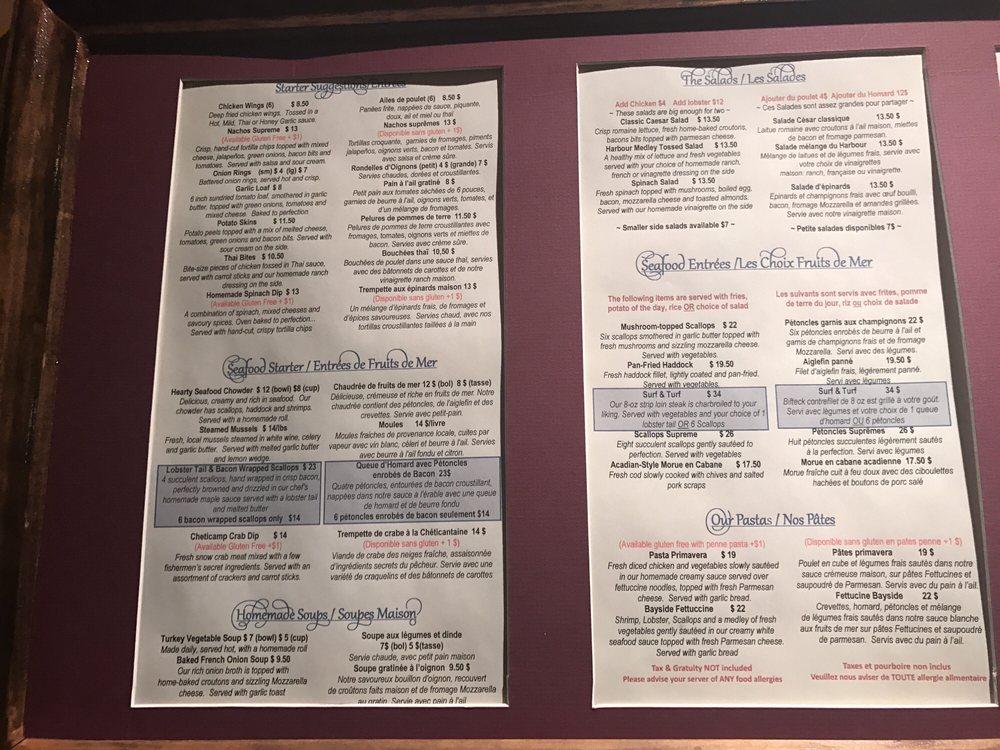 Starter Suggestions/ Entrées
Chicken Wings (6) $ 8.50
Deep fried chicken wings. Tossed in a
Hot, Mild, Thai or Honey Garlic sauce.
Nachos Supreme $ 13
(Available Gluten Free + $1)
Crisp, hand-cut tortilla chips topped with mixed
cheese, jalapeños, green onions, bacon bits and
tomatoes. Served with salsa and sour cream.
Onion Rings (sm) $ 4 (lg) $ 7
Battered onion rings, served hot and crisp.
Garlic Loaf $ 8
6 inch sundried tomato loaf, smothered in garlic
butter, topped with green onions, tomatoes and
mixed cheese. Baked to perfection
Potato Skins $ 11.50
Potato peels topped with a mix of melted cheese,
tomatoes, green onions and bacon bits. Served with
sour cream on the side.
Thai Bites $ 10.50
Bite-size pieces of chicken tossed in Thai sauce,
served with carrot sticks and our homemade ranch
dressing on the side.
Homemade Spinach Dip $ 13
(Available Gluten Free + $1)
A combination of spinach, mixed cheeses and
savoury spices. Oven baked to perfection...
Served with hand-cut, crispy tortilla chips
Ailes de poulet (6) 8.50 $
Panées frite, nappées de sauce, piquante,
doux, ail et miel ou thaï
Nachos suprêmes 13 $
(Disponible sans gluten + 1$)
Tortillas croquante, garnies de fromages, piments
jalapeños, oignons verts, bacon et tomates. Servis
avec salsa et crème sûre.
Rondelles d'Oignons (petit) 4 $ (grande) 7 $
Servies chaudes, dorées et croustillantes.
Pain à l'ail gratiné 8 $
Petit pain aux tomates séchées de 6 pouces,
garnies de beurre à l'ail, oignons verts, tomates, et
d'un mélange de fromages.
Pelures de pommes de terre 11.50 $
Pelures de pommes de terre croustillantes avec
fromages, tomates, oignons verts et miettes de
bacon. Servies avec crème sûre.
Bouchées thaï 10,50 $
Bouchées de poulet dans une sauce thaï, servies
avec des bâtonnets de carottes et de notre
vinaigrette ranch maison.
Trempette aux épinards maison 13 $
(Disponible sans gluten +1 $)
Un mélange d'épinards frais, de fromages et
d'épices savoureuses. Servies chaud, avec nos
tortillas croustillantes taillées à la main
Seafood Starter / Entrées de Fruits de Mer
Hearty Seafood Chowder $ 12 (bowl) $8 (cup)
Delicious, creamy and rich in seafood. Our
chowder has scallops, haddock and shrimps.
Served with a homemade roll.
Steamed Mussels $ 14/lbs
Fresh, local mussels steamed in white wine, celery
and garlic butter. Served with melted garlic butter
and lemon wedge.
Lobster Tail & Bacon Wrapped Scallops $ 23
4 succulent scallops, hand wrapped in crisp bacon,
perfectly browned and drizzled in our chef's
homemade maple sauce served with a lobster tail
and melted butter
6 bacon wrapped scallops only $14
Cheticamp Crab Dip $ 14
(Available Gluten Free +$1)
Fresh snow crab meat mixed with a few
fishermen's secret ingredients. Served with an
assortment of crackers and carrot sticks.
Chaudrée de fruits de mer 12 $ (bol) 8 $ (tasse)
Délicieuse, crémeuse et riche en fruits de mer. Notre
chaudrée contient des pétoncles, de l'aiglefin et des
crevettes. Servie avec petit-pain.
Moules 14 $/livre
Moules fraiches de provenance locale, cuites par
vapeur avec vin blanc, céleri et beurre à l'ail. Servies
avec beurre à l'ail fondu et citron.
Queue d'Homard avec Pétoncles
enrobés de Bacon 23$
Quatre pétoncles, entourées de bacon croustillant,
nappées dans notre sauce à l'érable avec une queue
de homard et de beurre fondu
6 pétoncles enrobés de bacon seulement $14
Trempette de crabe à la Chéticantaine 14 $
(Disponible sans gluten + 1 $)
Viande de crabe des neiges fraîche, assaisonnée
d'ingrédients secrets du pêcheur. Servie avec une
variété de craquelins et des bâtonnets de carottes
Homemade Soups / Soupes Maison
Turkey Vegetable Soup $ 7 (bowl) $ 5 (cup)
Made daily, served hot, with a homemade roll
Baked French Onion Soup $ 9.50
Our rich onion broth is topped with
home-baked croutons and sizzling Mozzarella
cheese. Served with garlic toast
Soupe aux légumes et dinde
7$ (bol) 5 $(tasse)
Servie chaude, avec petit pain maison
Soupe gratinée à l'oignon 9.50 $
Notre savoureux bouillon d'oignon, recouvert
de croûtons faits maison et de fromage Mozzarella
au gratin. Servie avec pain à l'ail
The Salads / Les Salades
Add Chicken $4 Add lobster $12
~ These salads are big enough for two ~
Classic Caesar Salad $ 13.50
Crisp romaine lettuce, fresh home-baked croutons,
bacons bits topped with parmesan cheese.
Harbour Medley Tossed Salad $ 13.50
A healthy mix of lettuce and fresh vegetables
served with your choice of homemade ranch,
french or vinaigrette dressing on the side
Spinach Salad $ 13.50
Fresh spinach topped with mushrooms, boiled egg,
bacon, mozzarella cheese and toasted almonds.
Served with our homemade vinaigrette on the side
~ Smaller side salads available $7 ~
Ajouter du poulet 4$ Ajouter du Homard 12$
~ Ces Salades sont assez grandes pour partager ~
Salade César classique 13.50 $
Laitue romaine avec croutons à l'ail maison, miettes
de bacon et fromage parmesan.
Salade mélange du Harbour 13.50 $
Mélange de laitues et de légumes frais, servie avec
votre choix de vinaigrettes
maison: ranch, française ou vinaigrette.
Salade d'épinards 13.50 $
Epinards et champignons frais avec œuf bouilli,
bacon, fromage Mozzarella et amandes grillées.
Servie avec notre vinaigrette maison.
~ Petite salades disponibles 7$ ~
Seafood Entrées /Les Choix Fruits de Mer
The following items are served with fries,
potato of the day, rice OR choice of salad
Mushroom-topped Scallops $ 22
Six scallops smothered in garlic butter topped with
fresh mushrooms and sizzling mozzarella cheese.
Served with vegetables.
Pan-Fried Haddock $ 19.50
Fresh haddock fillet, lightly coated and pan-fried.
Served with vegetables.
Surf & Turf $ 34
Our 8-oz strip loin steak is charbroiled to your
liking. Served with vegetables and your choice of 1
lobster tail OR 6 Scallops
Scallops Supreme $ 26
Eight succulent scallops gently sautéed to
perfection. Served with vegetables
Acadian-Style Morue en Cabane $ 17.50
Fresh cod slowly cooked with chives and salted
pork scraps
Les suivants sont servis avec frites, pomme
de terre du jour, riz ou choix de salade
Pétoncles garnis aux champignons 22 $
Six pétoncles enrobés de beurre à l'ail et
garnis de champignons frais et de fromage
Mozzarella. Servi avec des légumes.
Aiglefin panné 19.50 $
Filet d'aiglefin frais, légèrement panné.
Servi avec légumes
Surf & Turf 34 $
Bifteck contrefilet de 8 oz est grillé à votre goût.
Servi avec légumes et votre choix de 1 queue
d'homard OU 6 pétoncles
Pétoncles Suprêmes 26 $
Huit pétoncles succulentes légèrement sautés
à la perfection. Servi avec légumes
Morue en cabane acadienne 17.50 $
Morue fraîche cuit à feu doux avec des ciboulettes
hachées et boutons de porc salé
Our Pastas / Nos Pâtes
(Available gluten free with penne pasta +$1)
Pasta Primavera $ 19
Fresh diced chicken and vegetables slowly sautéed
in our homemade creamy sauce served over
fettuccine noodles, topped with fresh Parmesan
cheese. Served with garlic bread.
Bayside Fettuccine $ 22
Shrimp, Lobster, Scallops and a medley of fresh
vegetables gently sautéed in our creamy white
seafood sauce topped with fresh Parmesan cheese.
Served with garlic bread
Tax & Gratuity NOT included
Please advise your server of ANY food allergies
(Disponible sans gluten en pates penne +1 $)
Pâtes primavera 19 $
Poulet en cube et légumes frais sautés dans notre
sauce crémeuse maison, sur pâtes Fettucines et
saupoudré de Parmesan. Servis avec du pain à l'ail.
Fettucine Bayside 22 $
Crevettes, homard, pétoncles et mélange
de légumes frais sautés dans notre sauce blanche
aux fruits de mer sur pâtes Fettucines et saupoudré
de parmesan. Servis avec du pain à l'ail.
Taxes et pourboire non inclus
Veuillez nous aviser de TOUTE allergie alimentaire